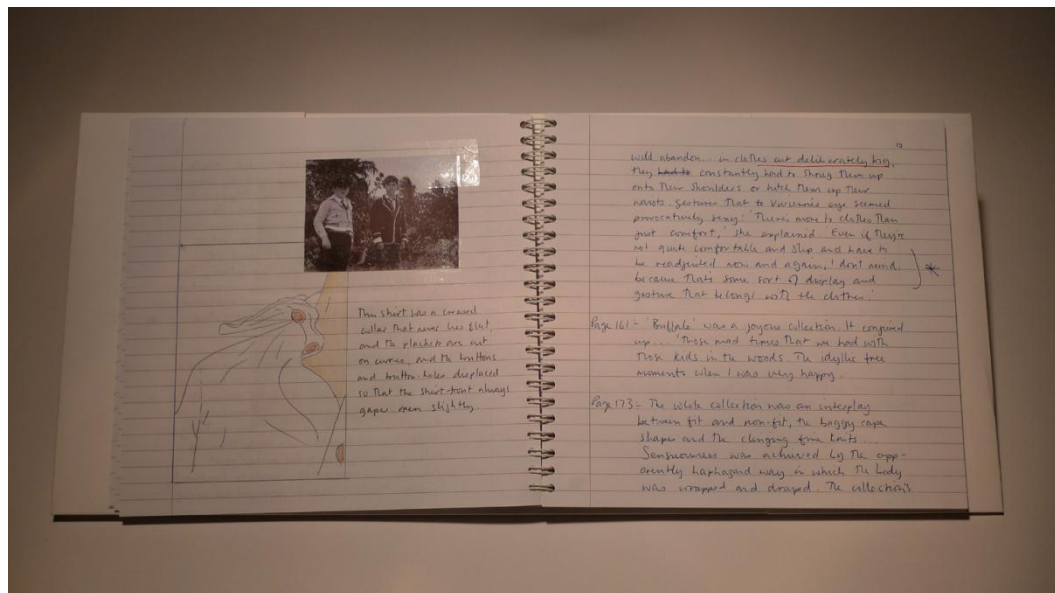 This shirt has a creased
collar that never lies flat,
and the plackets are cut
on curves, and the buttons
and button-holes displaced
so that the shirt-front always
gapes open slightly.
wild abandon... in clothes cut deliberately big,
they had to constantly had to shrug them up
onto their shoulders or hitch them up their
waists. Gestures that to Vivienne's eye seemed
provocatively sexy: 'There's more to clothes than
just comfort,' she explained. 'Even if they're
not quite comfortable and slip and have to
be readjusted now and again, I don't mind,
because that's some sort of display and
gesture that belongs with the clothes.'
Page 161 - 'Buffalo' was a joyous collection. It conjured
up... 'Those mad times that we had with
those kids in the woods. The idyllic free
moments when I was very happy.
Page 173 - The whole collection was an interplay
between fit and non-fit, the baggy cape
shapes and the clinging fine knits...
Sensuousness was achieved by the app-
arently haphazard way in which the body
was wrapped and draped. The collection's